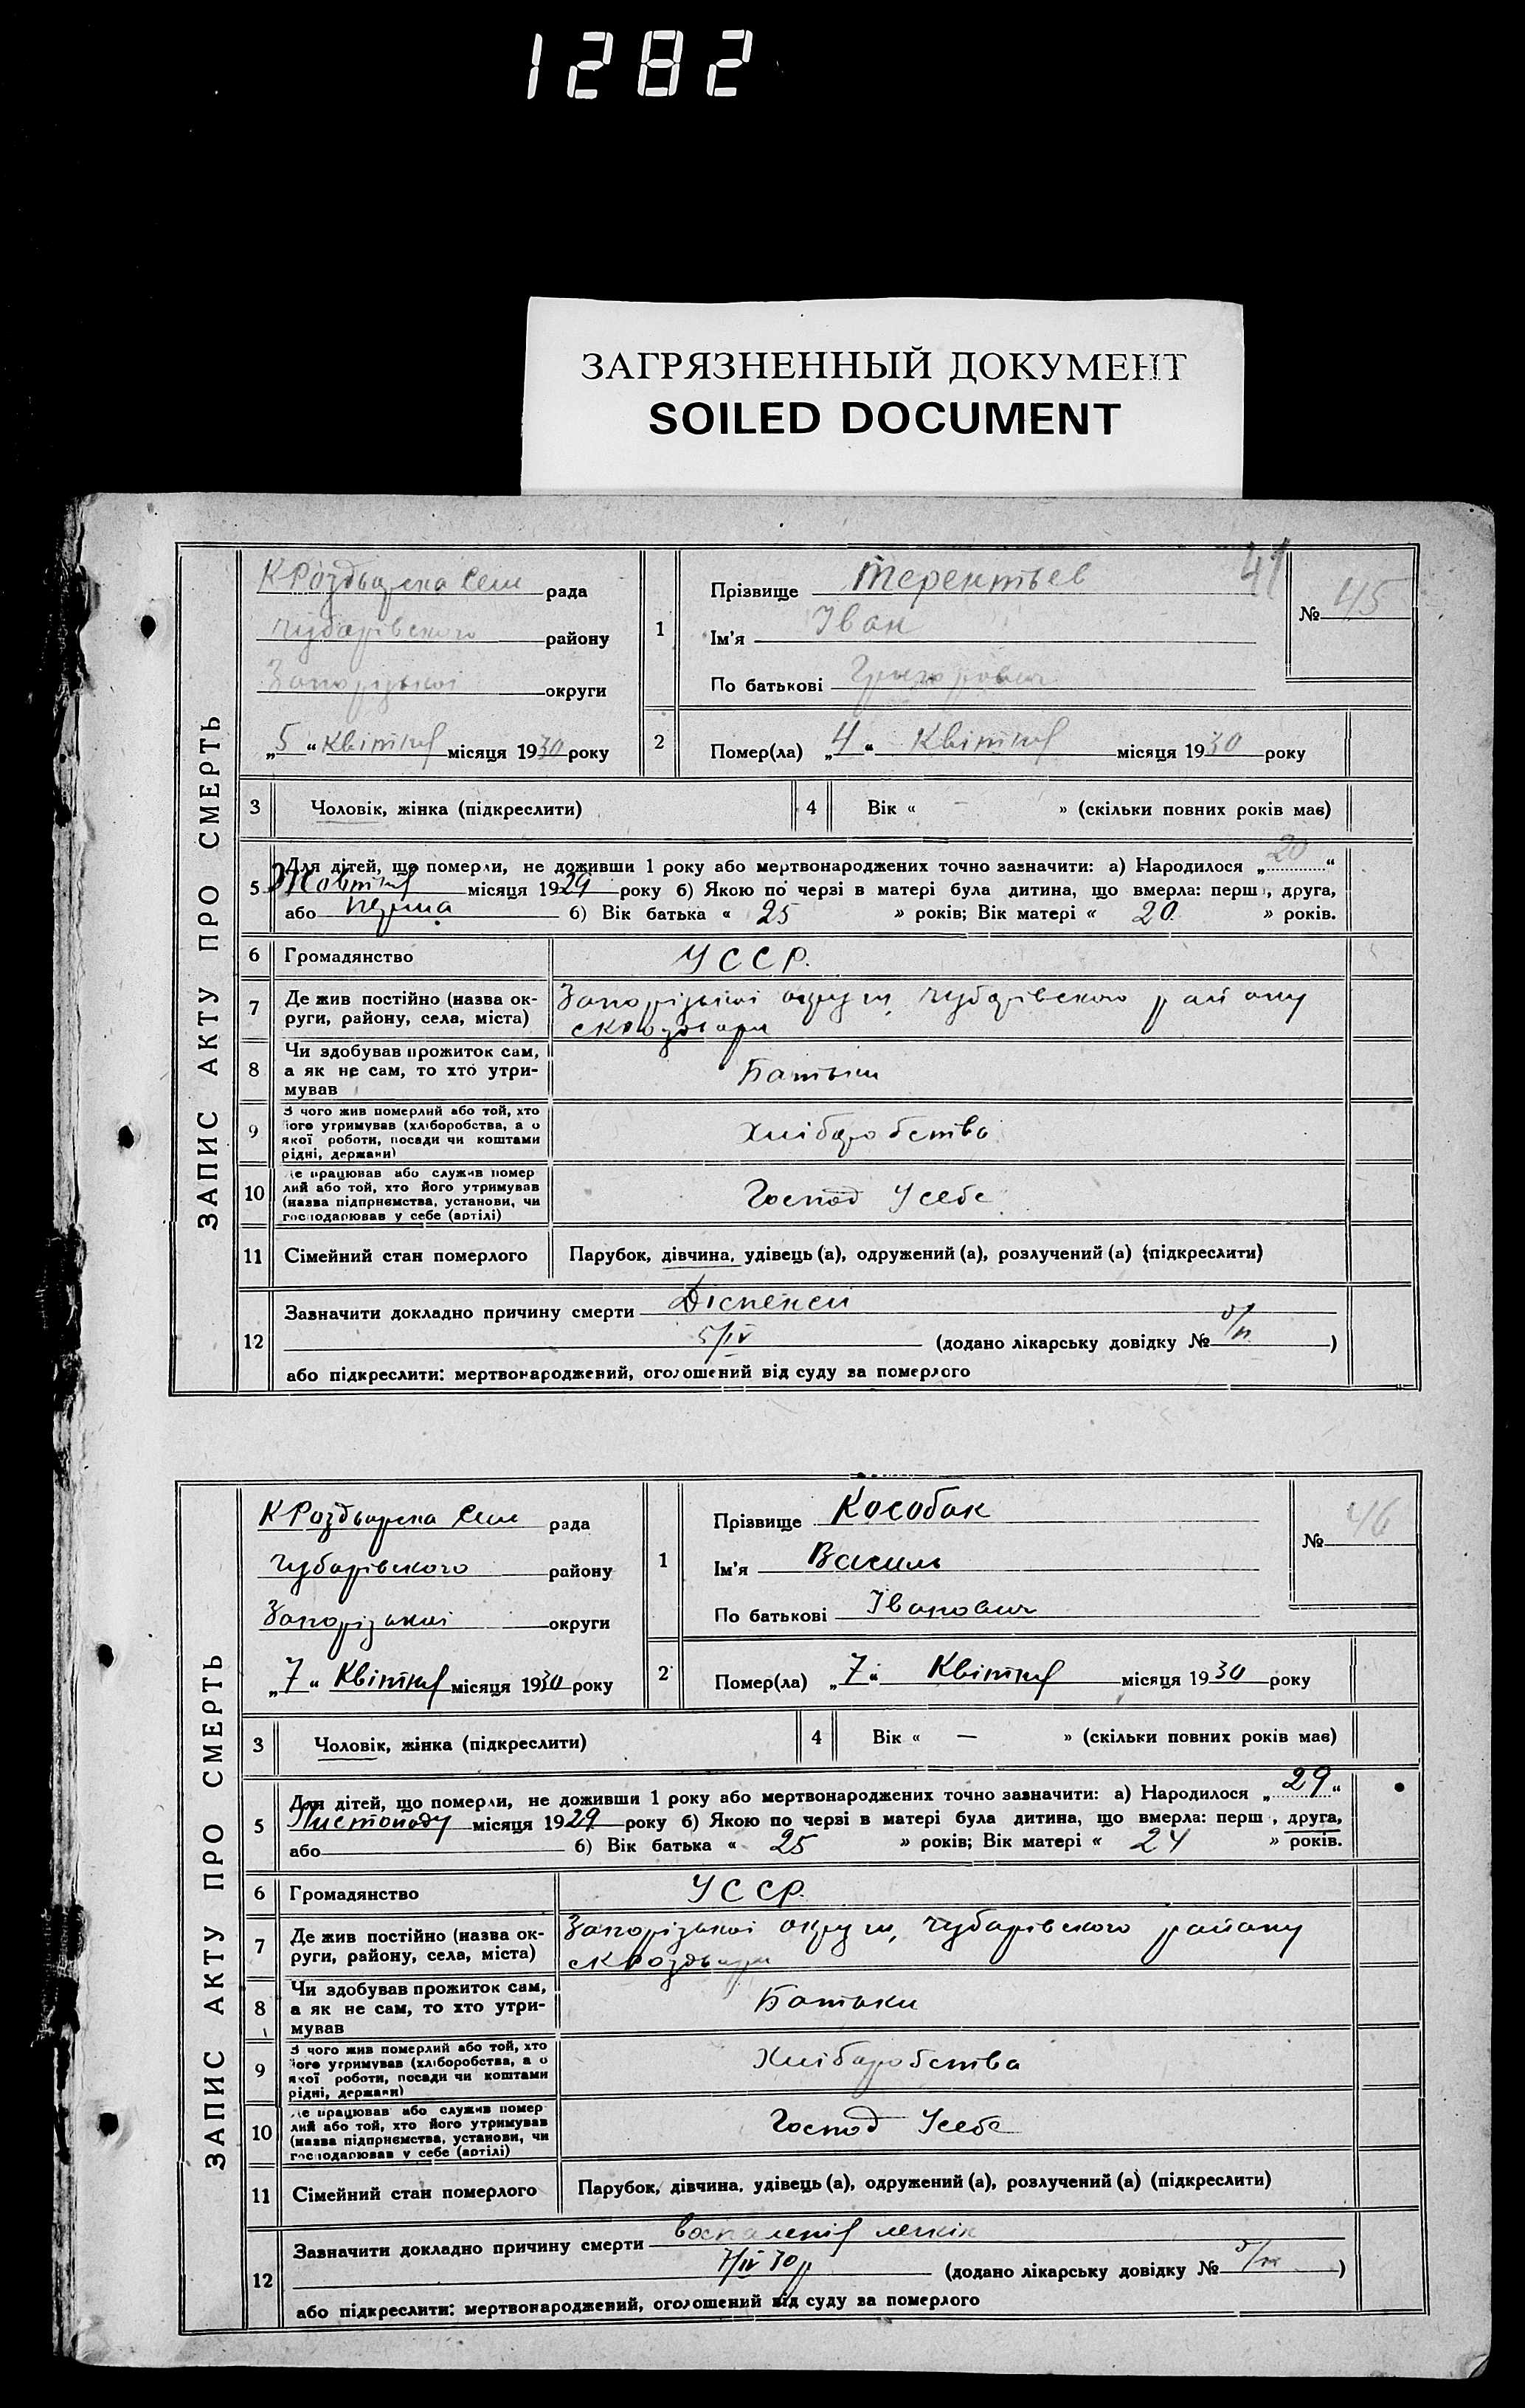 1282
ЗАГРЯЗНЕННЫЙ ДОКУМЕНТ
SOILED DOCUMENT
41
ЗАПИС АКТУ ПРО СМЕРТЬ
рада
Чубарівского району
Запорізької округи
„5“ Квітня місяця 1930 року
1 Прізвище Терентьев
Ім'я Іван
По батькові
№ 45
2 Помер(ла) „4“ Квітня місяця 1930 року
3 Чоловік, жінка (підкреслити)
4 Вік « — » (скільки повних років має)
5 Для дітей, що померли, не доживши 1 року або мертвонароджених точно зазначити: а) Народилося „20“
Жовтня місяця 1929 року б) Якою по черзі в матері була дитина, що вмерла: перша, друга,
або перша б) Вік батька « 25 » років; Вік матері « 20 » років.
6 Громадянство УССР.
7 Де жив постійно (назва округи, району, села, міста) Запорізької округи, Чубарівского району
8 Чи здобував прожиток сам,
а як не сам, то хто утри-
мував Батьки
9 З чого жив померлий або той, хто
його утримував (хліборобства, а о
якої роботи, посади чи коштами
рідні, держави) Хліборобство
10 Де працював або служив помер
лий або той, хто його утримував
(назва підприємства, установи, чи
господарював у себе (артілі) Господ Усебе
11 Сімейний стан померлого Парубок, дівчина, удівець (а), одружений (а), розлучений (а) (підкреслити)
12 Зазначити докладно причину смерти Діспенсіи
5/IV (додано лікарську довідку № )
або підкреслити: мертвонароджений, оголошений від суду за померлого
ЗАПИС АКТУ ПРО СМЕРТЬ
рада
Чубарівского району
Запорізької округи
„7“ Квітня місяця 1930 року
1 Прізвище Кособок
Ім'я Василь
По батькові Іванович
№ 46
2 Помер(ла) „7“ Квітня місяця 1930 року
3 Чоловік, жінка (підкреслити)
4 Вік « — » (скільки повних років має)
5 Для дітей, що померли, не доживши 1 року або мертвонароджених точно зазначити: а) Народилося „29“
Листопаду місяця 1929 року б) Якою по черзі в матері була дитина, що вмерла: перша, друга,
або б) Вік батька « 25 » років; Вік матері « 24 » років.
6 Громадянство УССР.
7 Де жив постійно (назва округи, району, села, міста) Запорізької округи, Чубарівского району
8 Чи здобував прожиток сам,
а як не сам, то хто утри-
мував Батьки
9 З чого жив померлий або той, хто
його утримував (хліборобства, а о
якої роботи, посади чи коштами
рідні, держави) Хліборобство
10 Де працював або служив помер
лий або той, хто його утримував
(назва підприємства, установи, чи
господарював у себе (артілі) Господ Усебе
11 Сімейний стан померлого Парубок, дівчина, удівець (а), одружений (а), розлучений (а) (підкреслити)
12 Зазначити докладно причину смерти Воспаленія легкіх
7/IV 30 р (додано лікарську довідку № )
або підкреслити: мертвонароджений, оголошений від суду за померлого